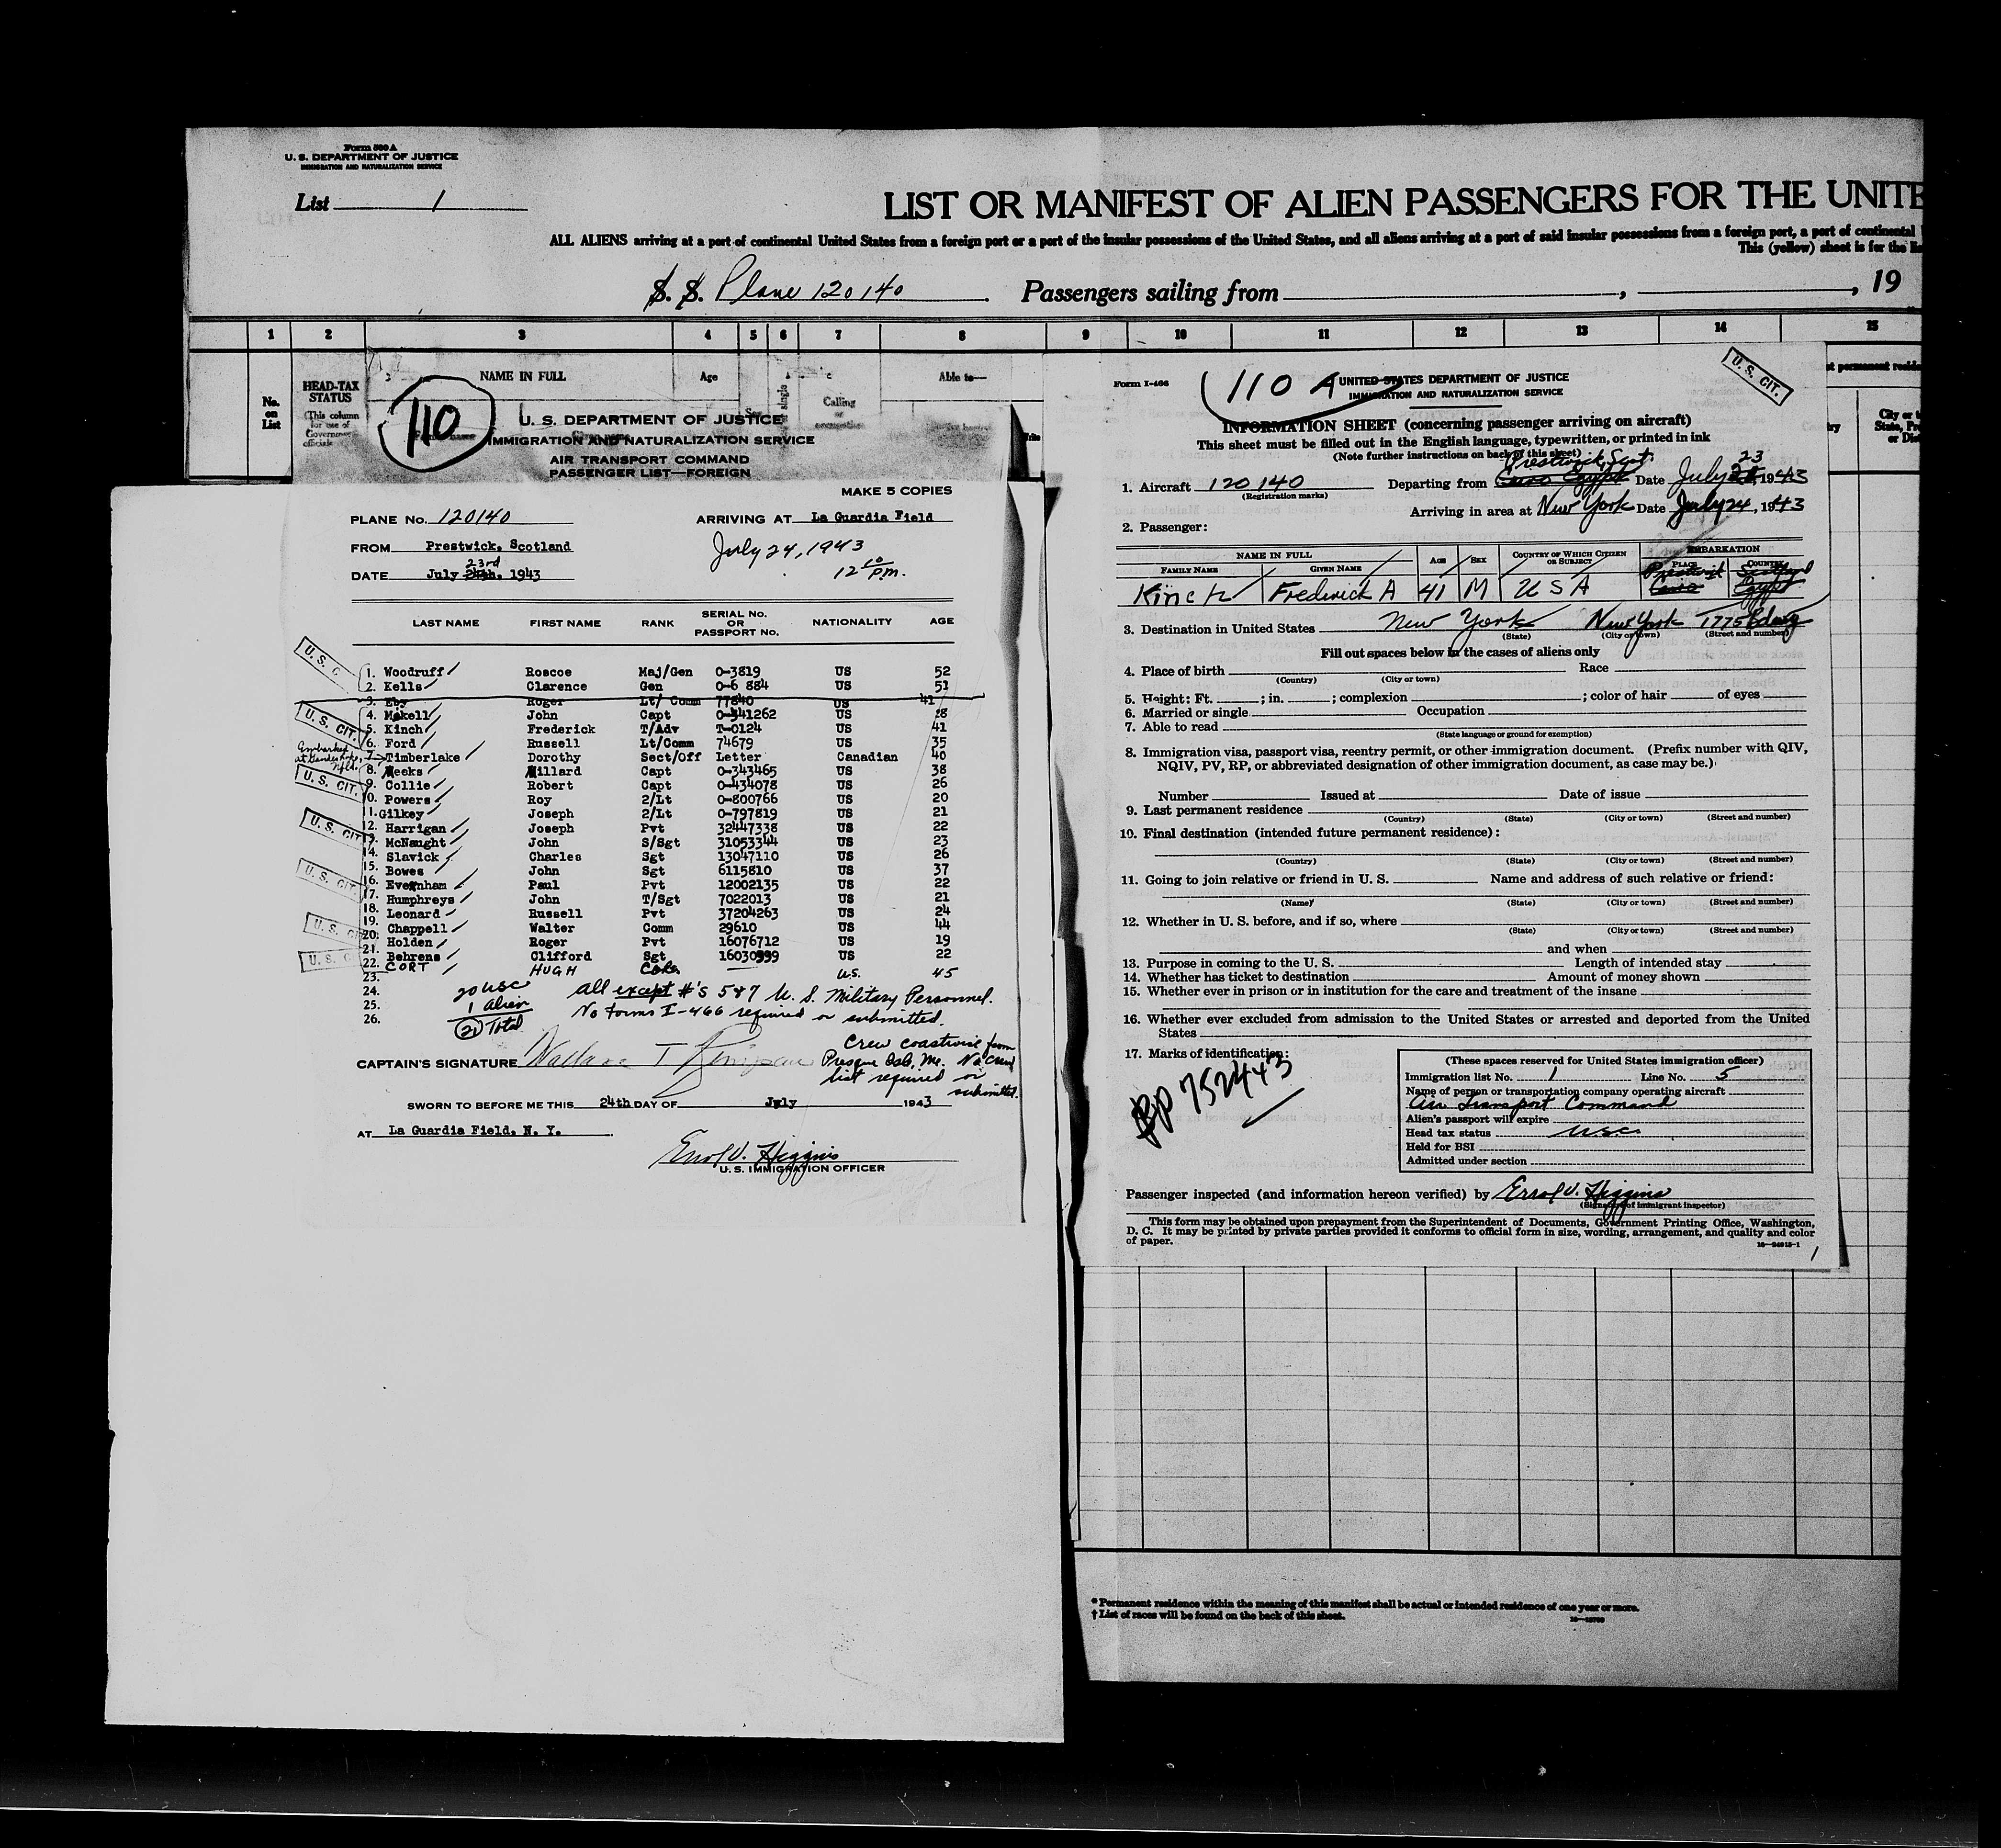 Form 500 A
U. S. DEPARTMENT OF JUSTICE
IMMIGRATION AND NATURALIZATION SERVICE
List 1
LIST OR MANIFEST OF ALIEN PASSENGERS FOR THE UNITE
ALL ALIENS arriving at a port of continental United States from a foreign port or a port of the insular possessions of the United States, and all aliens arriving at a port of said insular possessions from a foreign port, a port of continental
This (yellow) sheet is for the lis
S. S. Plane 120140 . Passengers sailing from , , 19
1 2 3 4 5 6 7 8 9 10 11 12 13 14 15
No. on List
HEAD-TAX STATUS
(This column for use of Government officials
NAME IN FULL
Age
Calling or occupation
Able to—
110
U. S. DEPARTMENT OF JUSTICE
IMMIGRATION AND NATURALIZATION SERVICE
AIR TRANSPORT COMMAND
PASSENGER LIST—FOREIGN
MAKE 5 COPIES
PLANE No. 120140 ARRIVING AT La Guardia Field
FROM Prestwick, Scotland July 24, 1943
DATE July 24th, 23rd 1943 12 10 P.m.
LAST NAME FIRST NAME RANK SERIAL NO. OR PASSPORT NO. NATIONALITY AGE
U. S. C
1. Woodruff Roscoe Maj/Gen O-3819 US 52
2. Kells Clarence Gen O-6 884 US 51
3. Eby Roger Lt/ Comm 77840 US 41
U. S. CIT.
4. Makell John Capt O-341262 US 28
5. Kinch Frederick T/Adv T-0124 US 41
6. Ford Russell Lt/Comm 74679 US 35
Embarked at Nfld.
7. Timberlake Dorothy Sect/Off Letter Canadian 40
8. Meeks Millard Capt O-343465 US 38
U. S. CIT.
9. Collie Robert Capt O-434078 US 26
10. Powers Roy 2/Lt O-800766 US 20
11. Gilkey Joseph 2/Lt O-797819 US 21
12. Harrigan Joseph Pvt 32447338 US 22
U. S. CIT
13. McNaught John S/Sgt 31053344 US 23
14. Slavick Charles Sgt 13047110 US 26
15. Bowes John Sgt 6115810 US 37
16. Evernham Paul Pvt 12002135 US 22
U. S. CIT
17. Humphreys John T/Sgt 7022013 US 21
18. Leonard Russell Pvt 37204263 US 24
19. Chappell Walter Comm 29610 US 44
U. S. CIT
20. Holden Roger Pvt 16076712 US 19
21. Behrens Clifford Sgt 16030999 US 22
U. S. C
22. CORT HUGH U.S. 45
23.
24.
25.
26.
20 USC
1 Alien
21 Total
all except #'s 5 & 7 U. S. Military Personnel.
No Forms I-466 required or submitted.
Crew coastwise from
Presque Isle, Me. No crew
list required or
submitted.
CAPTAIN'S SIGNATURE Wallace T
SWORN TO BEFORE ME THIS 24th DAY OF July 1943
AT La Guardia Field, N. Y.
Errol V. Higgins
U.S. IMMIGRATION OFFICER
U. S. CIT.
Form I-466
110 A
UNITED STATES DEPARTMENT OF JUSTICE
IMMIGRATION AND NATURALIZATION SERVICE
INFORMATION SHEET (concerning passenger arriving on aircraft)
This sheet must be filled out in the English language, typewritten, or printed in ink
(Note further instructions on back of this sheet)
Prestwick, Scot. 23
1. Aircraft 120140 Departing from Cairo Egypt Date July , 1943
(Registration marks)
Arriving in area at New York Date July 24, 1943
2. Passenger:
NAME IN FULL AGE SEX COUNTRY OF WHICH CITIZEN OR SUBJECT EMBARKATION
FAMILY NAME GIVEN NAME PLACE COUNTRY
Prestwick Scotland
Kinch Frederick A 41 M U S A Cairo Egypt
3. Destination in United States New York New York 1775
(State) (City or town) (Street and number)
Fill out spaces below in the cases of aliens only
4. Place of birth Race
(Country) (City or town)
5. Height: Ft. ; in. ; complexion ; color of hair of eyes
6. Married or single Occupation
7. Able to read
(State language or ground for exemption)
8. Immigration visa, passport visa, reentry permit, or other immigration document. (Prefix number with QIV,
NQIV, PV, RP, or abbreviated designation of other immigration document, as case may be.)
Number Issued at Date of issue
9. Last permanent residence
(Country) (State) (City or town) (Street and number)
10. Final destination (intended future permanent residence):
(Country) (State) (City or town) (Street and number)
11. Going to join relative or friend in U. S. Name and address of such relative or friend:
(Name) (State) (City or town) (Street and number)
12. Whether in U. S. before, and if so, where
(State) (City or town) (Street and number)
and when
13. Purpose in coming to the U. S. Length of intended stay
14. Whether has ticket to destination Amount of money shown
15. Whether ever in prison or in institution for the care and treatment of the insane
16. Whether ever excluded from admission to the United States or arrested and deported from the United
States
17. Marks of identification:
752443
(These spaces reserved for United States immigration officer)
Immigration list No. 1 Line No. 5
Name of person or transportation company operating aircraft
Air Transport Command
Alien's passport will expire
Head tax status USC
Held for BSI
Admitted under section
Passenger inspected (and information hereon verified) by Errol V. Higgins
(Signature of immigrant inspector)
This form may be obtained upon prepayment from the Superintendent of Documents, Government Printing Office, Washington,
D. C. It may be printed by private parties provided it conforms to official form in size, wording, arrangement, and quality and color
of paper.
1
t permanent reside
City or t
State, Pr
or Di
* Permanent residence within the meaning of this manifest shall be actual or intended residence of one year or more.
† List of races will be found on the back of this sheet.